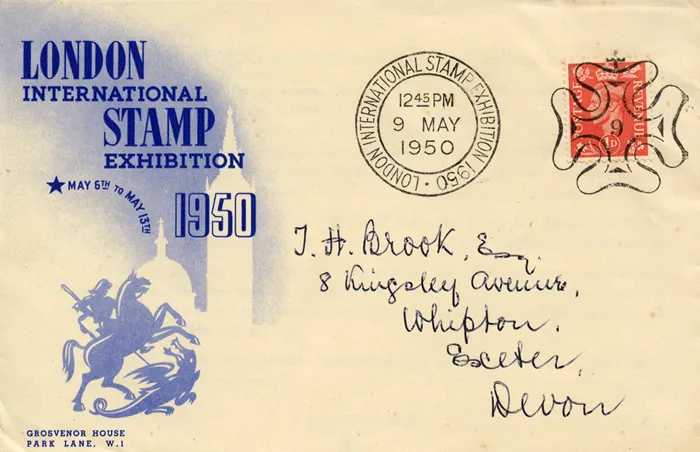 LONDON
INTERNATIONAL
STAMP
EXHIBITION
★ MAY 6TH TO MAY 13TH
1950
GROSVENOR HOUSE
PARK LANE, W.1
LONDON INTERNATIONAL STAMP EXHIBITION 1950
12 45 PM
9 MAY
1950
REVENUE
1D
9
T. H. Brook, Esq.
8 Kingsley Avenue,
Whipton.
Exeter,
Devon